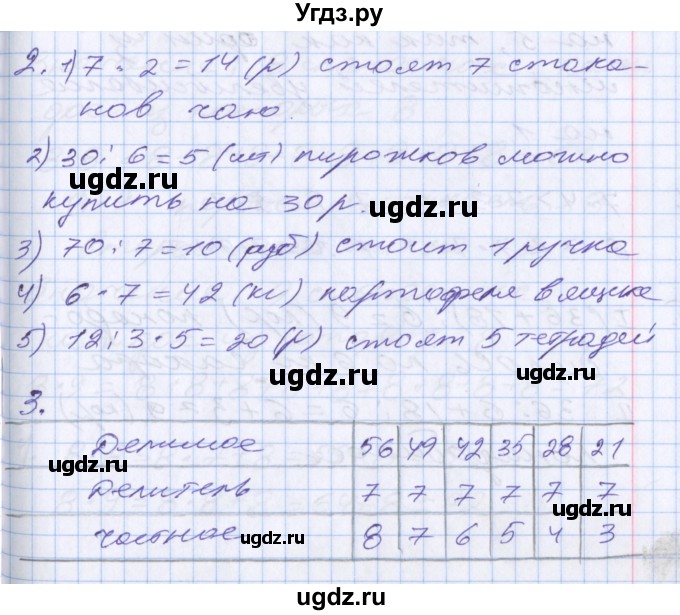 Угдз.ру
2. 1) 7 · 2 = 14 (р) стоят 7 стака-
нов чаю.
2) 30 : 6 = 5 (шт) пирожков можно
ugdz.ru
ugdz.ru
купить на 30 р.
ugdz.ru
3) 70 : 7 = 10 (руб) стоит 1 ручка
4) 6 · 7 = 42 (кг) картофеля в ящике
5) 12 : 3 · 5 = 20 (р) стоят 5 тетрадей
ugdz.ru
ugdz.ru
3.
Делимое 56 49 42 35 28 21
ugdz.ru
Делитель 7 7 7 7 7 7
ugdz.ru
частное 8 7 6 5 4 3
ugdz.ru
ugdz.ru